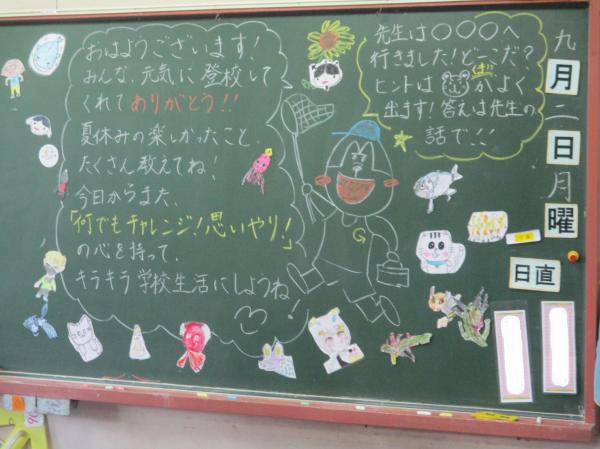 おはようございます!
みんな、元気に登校して
くれてありがとう!!
夏休みの楽しかったこと
たくさん教えてね!
今日からまた、
「何でもチャレンジ!思いやり!」
の心を持って、
キラキラ学校生活にしようね
!
先生は〇〇〇へ
行きました!どーこだ?
ヒントは がよく
出ます!答えは先生の
話で!!
G
九月二日月曜
日直